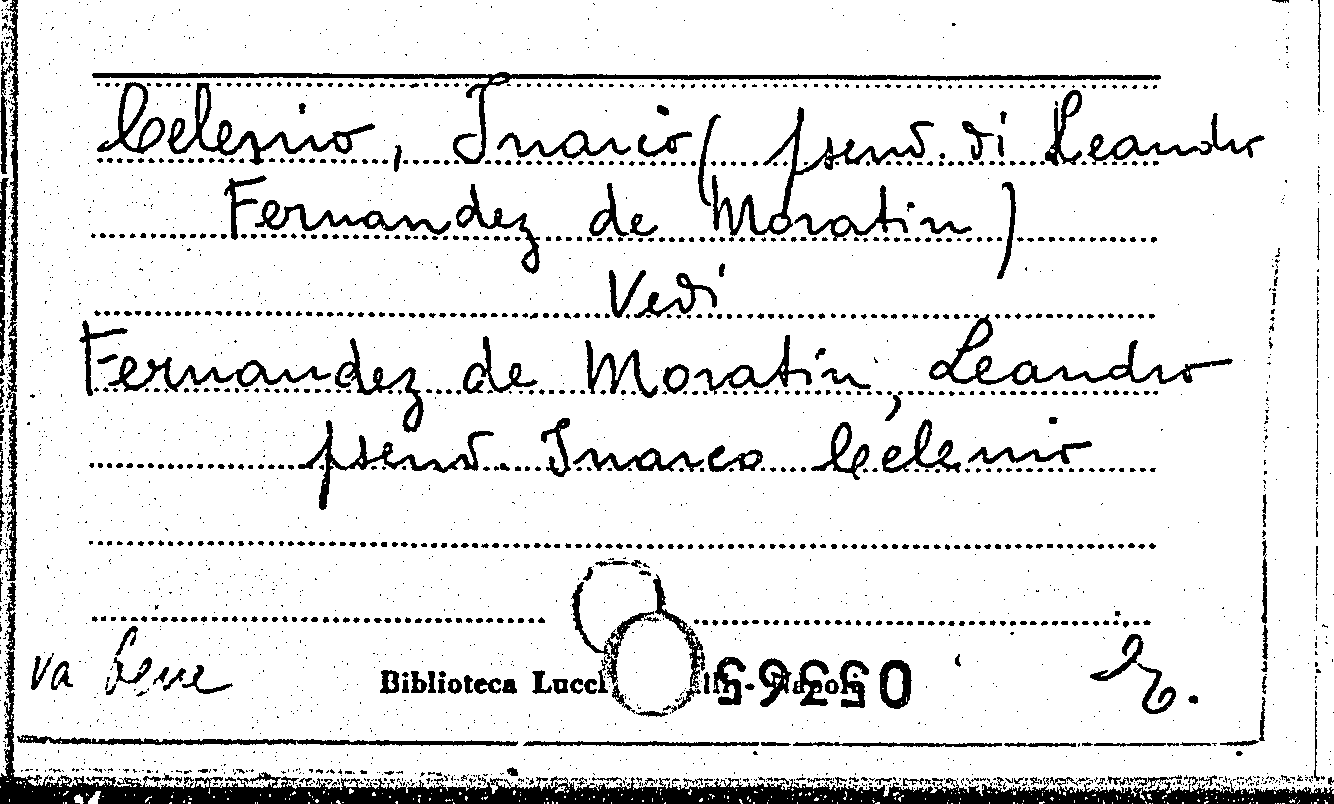 Celenio, Inarco (pseud. di Leandro
Fernandez de Moratin)
Vedi
Fernandez de Moratin, Leandro
pseud. Inarco Celenio
va bene
Biblioteca Lucchesi Palli - Napoli